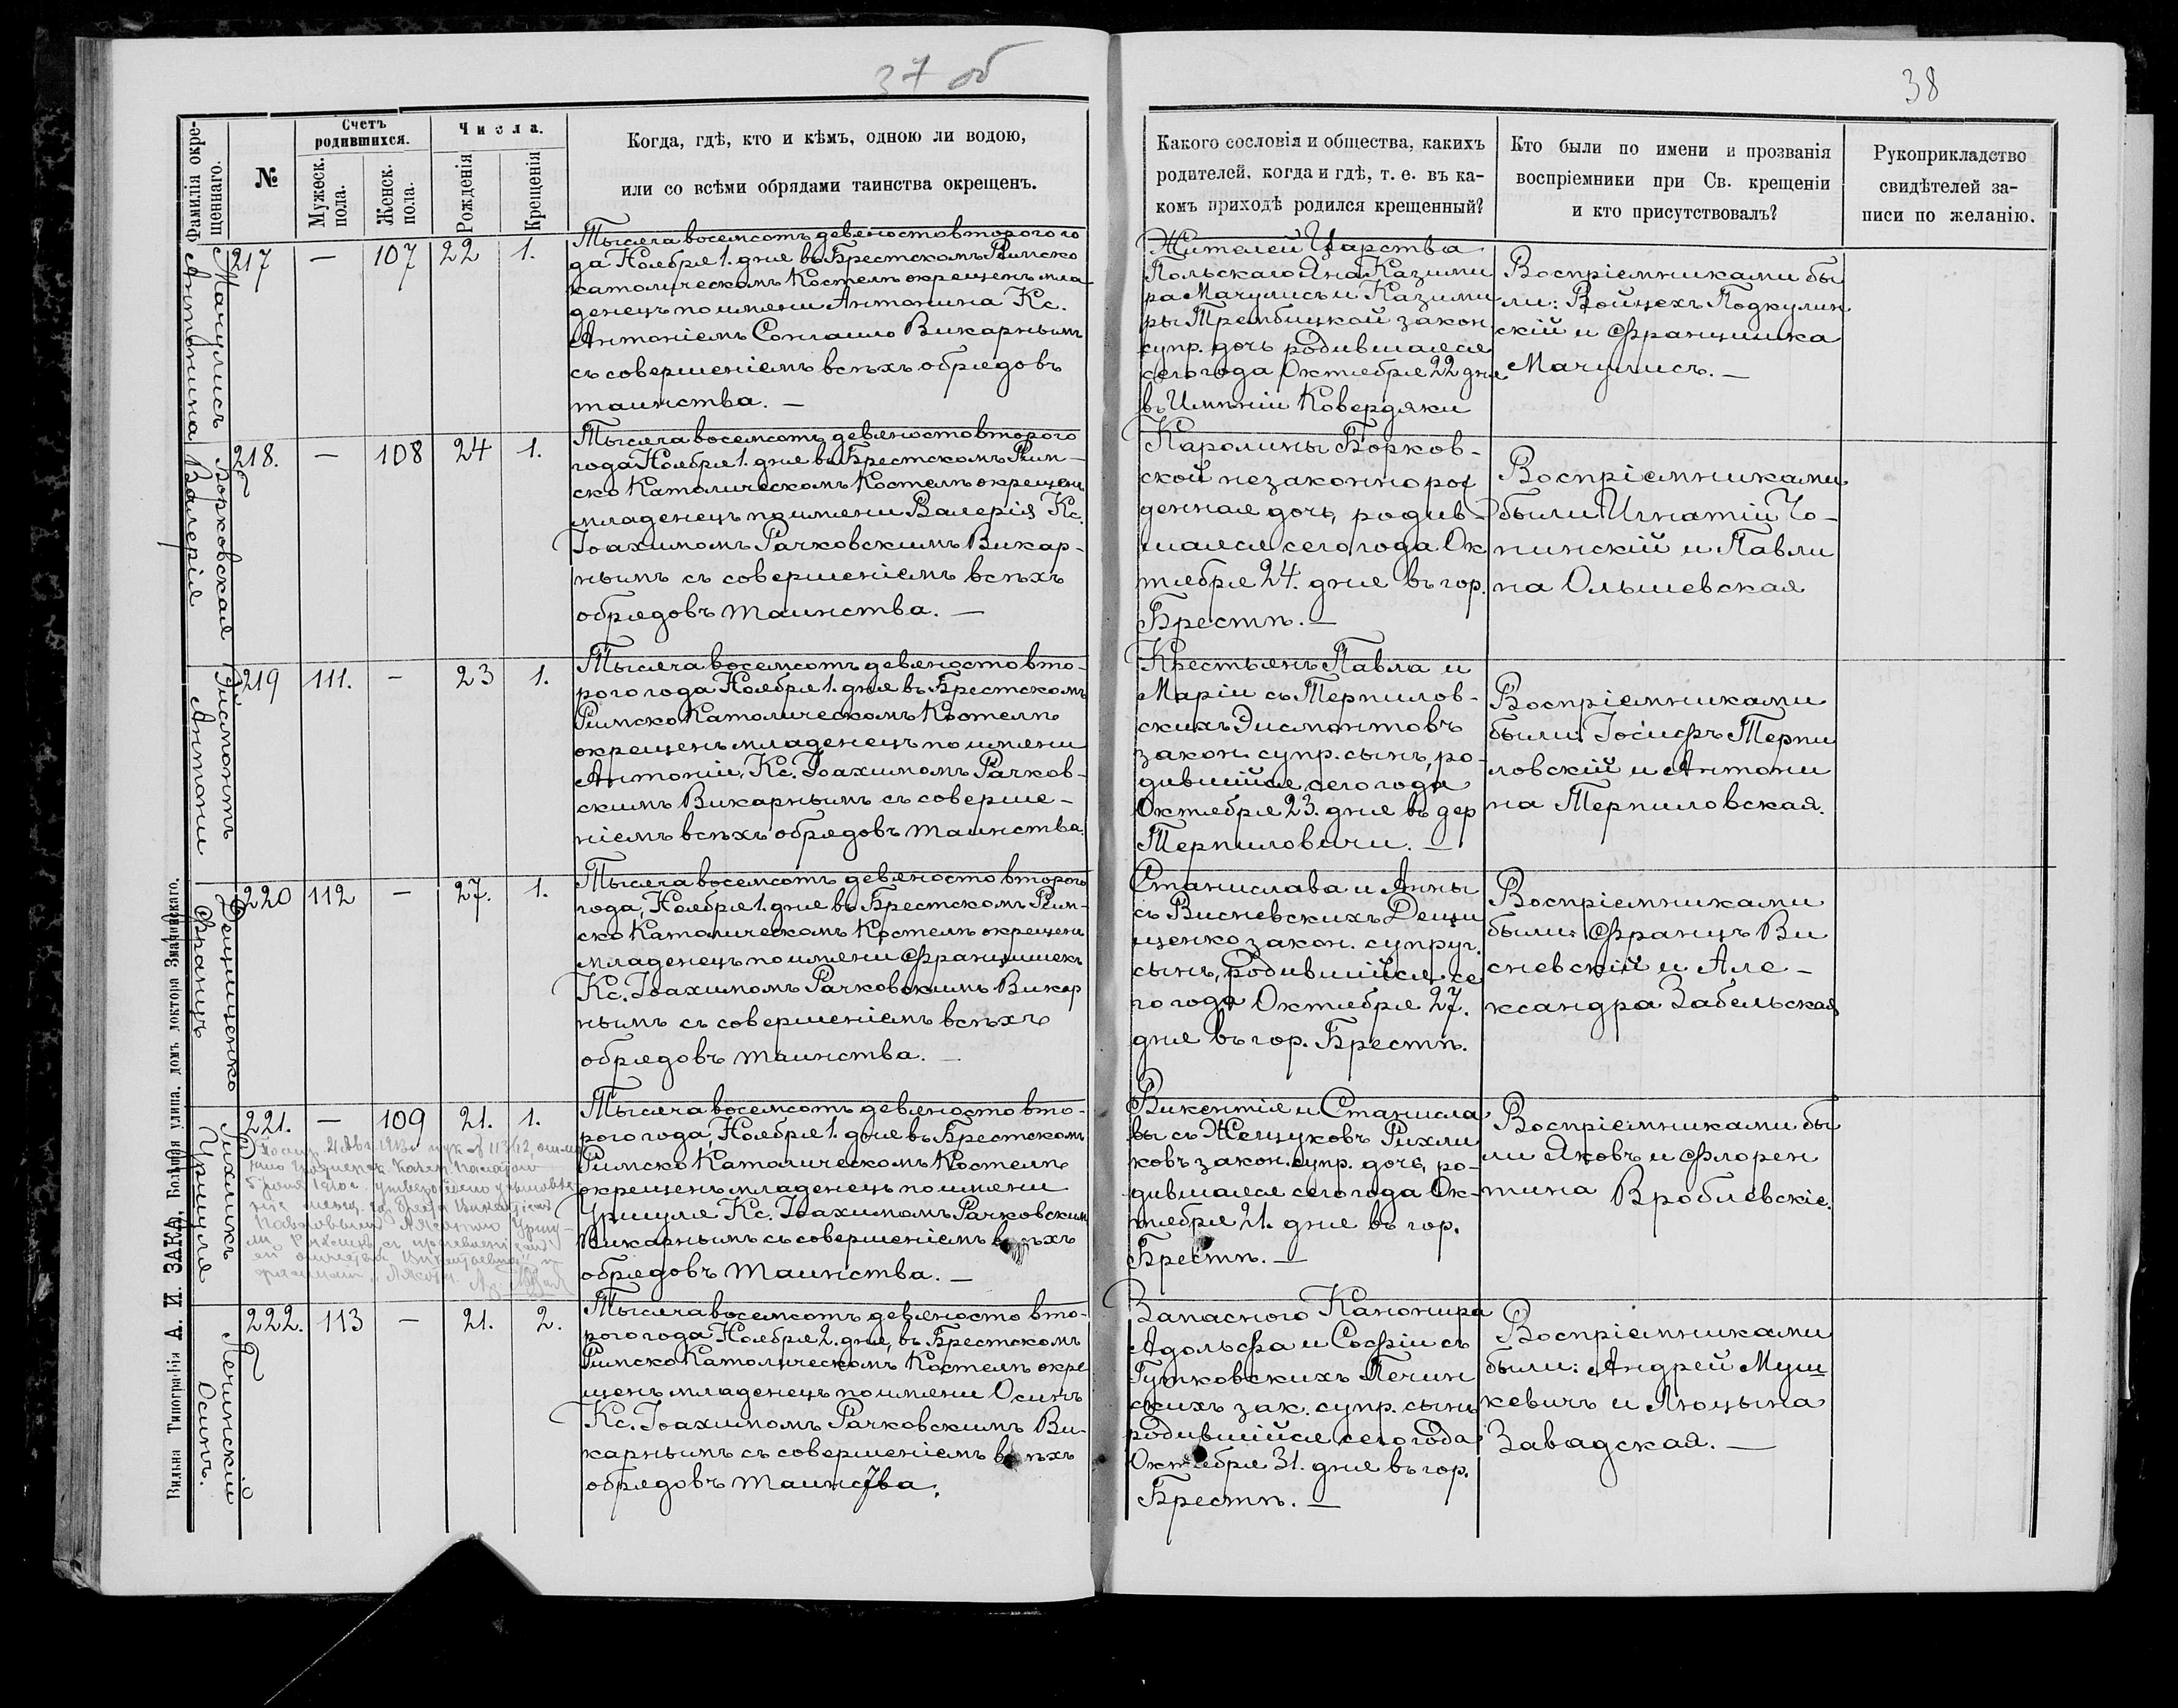 37 об
38
Фамилія окре-
щеннаго.
№
Счетъ
родившихся.
Мужеск.
пола.
Женск.
пола.
Числа.
Рожденія
Крещенія
Когда, гдѣ, кто и кѣмъ, одною ли водою,
или со всѣми обрядами таинства окрещенъ.
Какого сословія и общества, какихъ
родителей, когда и гдѣ, т. е. въ ка-
комъ приходѣ родился крещенный?
Кто были по имени и прозванія
воспріемники при Св. крещеніи
и кто присутствовалъ?
Рукоприкладство
свидѣтелей за-
писи по желанію.
Мачулисъ
Антонина
217 — 107 22 1.
Тысяча восемсотъ девяносто второго го
да Ноября 1. дня въ Брестскомъ Римско
католическомъ Костелѣ окрещенъ мла-
денецъ по имени Антонина Кс.
Антоніемъ Сонгайло Викарнымъ
съ совершеніемъ всѣхъ обрядовъ
таинства. —
Жителей Царства
Польскаго Яна Казими
ра Мачулисъ и Казими
ры Трембицкой закон.
супр. дочь родившаяся
сего года Октября 22 дня
въ Имѣніи Ковердяки
Воспріемниками бы
ли: Войцехъ Подкулин
скій и Францишка
Мачулисъ. —
Борковская
Валерія
218. — 108 24 1.
Тысяча восемсотъ девяносто второго
года Ноября 1. дня въ Брестскомъ Рим-
ско Католическомъ Костелѣ окрещенъ
младенецъ по имени Валерія Кс.
Іоахимомъ Рачковскимъ Викар-
нымъ съ совершеніемъ всѣхъ
обрядовъ таинства. —
Каролины Борков-
ской незаконнорож
денная дочь, родив-
шаяся сего года Ок
тября 24. дня въ гор.
Брестѣ. —
Воспріемниками
были Игнатій Чо-
пинскій и Павли
на Ольшевская
Эисмонтъ
Антони
219 111. — 23 1.
Тысяча восемсотъ девяносто вто-
рого года Ноября 1. дня въ Брестскомъ
Римско Католическомъ Костелѣ
окрещенъ младенецъ по имени
Антоній, Кс. Іоахимомъ Рачков-
скимъ Викарнымъ съ соверше-
ніемъ всѣхъ обрядовъ таинства.
Крестьянъ Павла и
Маріи съ Терпилов-
скихъ Эисмонтовъ
закон. супр. сынъ, ро-
дившійся сего года
Октября 23. дня въ дер
Терпиловичи. —
Воспріемниками
были: Іосифъ Терпи
ловскій и Антони
на Терпиловская.
Дещиценко
Францъ
220 112 — 27. 1.
Тысяча восемсотъ девяносто второго
года, Ноября 1. дня въ Брестскомъ Рим-
ско Католическомъ Костелѣ окрещенъ
младенецъ по имени Францишекъ
Кс. Іоахимомъ Рачковскимъ Викар
нымъ съ совершеніемъ всѣхъ
обрядовъ таинства. —
Станислава и Анны
съ Висневскихъ Дещи
ценко закон. супруг.
сынъ, родившійся се
го года Октября 27.
дня въ гор. Брестѣ.
Воспріемниками
были: Францъ Ви
сневскій и Але-
ксандра Забельская
Рихликъ
Уршуля
221. — 109 21. 1.
Тысяча восемсотъ девяносто вто-
рого года, Ноября 1. дня въ Брестскомъ
Римско Католическомъ Костелѣ
окрещенъ младенецъ по имени
Уршуля Кс. Іоахимомъ Рачковским
Викарнымъ съ совершеніемъ всѣхъ
обрядовъ таинства. —
Викентія и Станисла
вы съ Жещуковъ Рихли
ковъ закон. супр. дочь, ро-
дившаяся сего года Ок-
тября 21. дня въ гор.
Брестѣ. —
Воспріемниками бы
ли Яковъ и Флорен
тина Вроблевскіе.
Печинскій
Осипъ.
222. 113 — 21. 2.
Тысяча восемсотъ девяносто вто-
рого года, Ноября 2. дня, въ Брестскомъ
Римско Католическомъ Костелѣ окре
щенъ младенецъ по имени Осипъ
Кс. Іоахимомъ Рачковскимъ Ви-
карнымъ съ совершеніемъ всѣхъ
обрядовъ таинства.
Запасного Канонира
Адольфа и Софіи съ
Гутковскихъ Печин
скихъ зак. супр. сынъ
родившійся сего года
Октября 31. дня въ гор.
Брестѣ. —
Воспріемниками
были: Андрей Муш
кевичъ и Люцына
Завадская. —
Вильна Типографія А. И. ЗАКА, Большая улица, домъ доктора Змачинскаго.